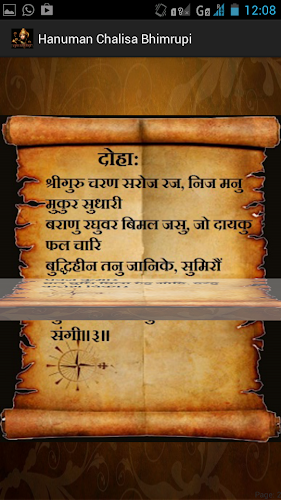 12:08
Hanuman Chalisa Bhimrupi
दोहाः
श्रीगुरु चरण सरोज रज, निज मनु
मुकुर सुधारी
बराणु रघुवर बिमल जसु, जो दायकु
फल चारि
बुद्धिहीन तनु जानिके, सुमिरौं
संगी॥३॥